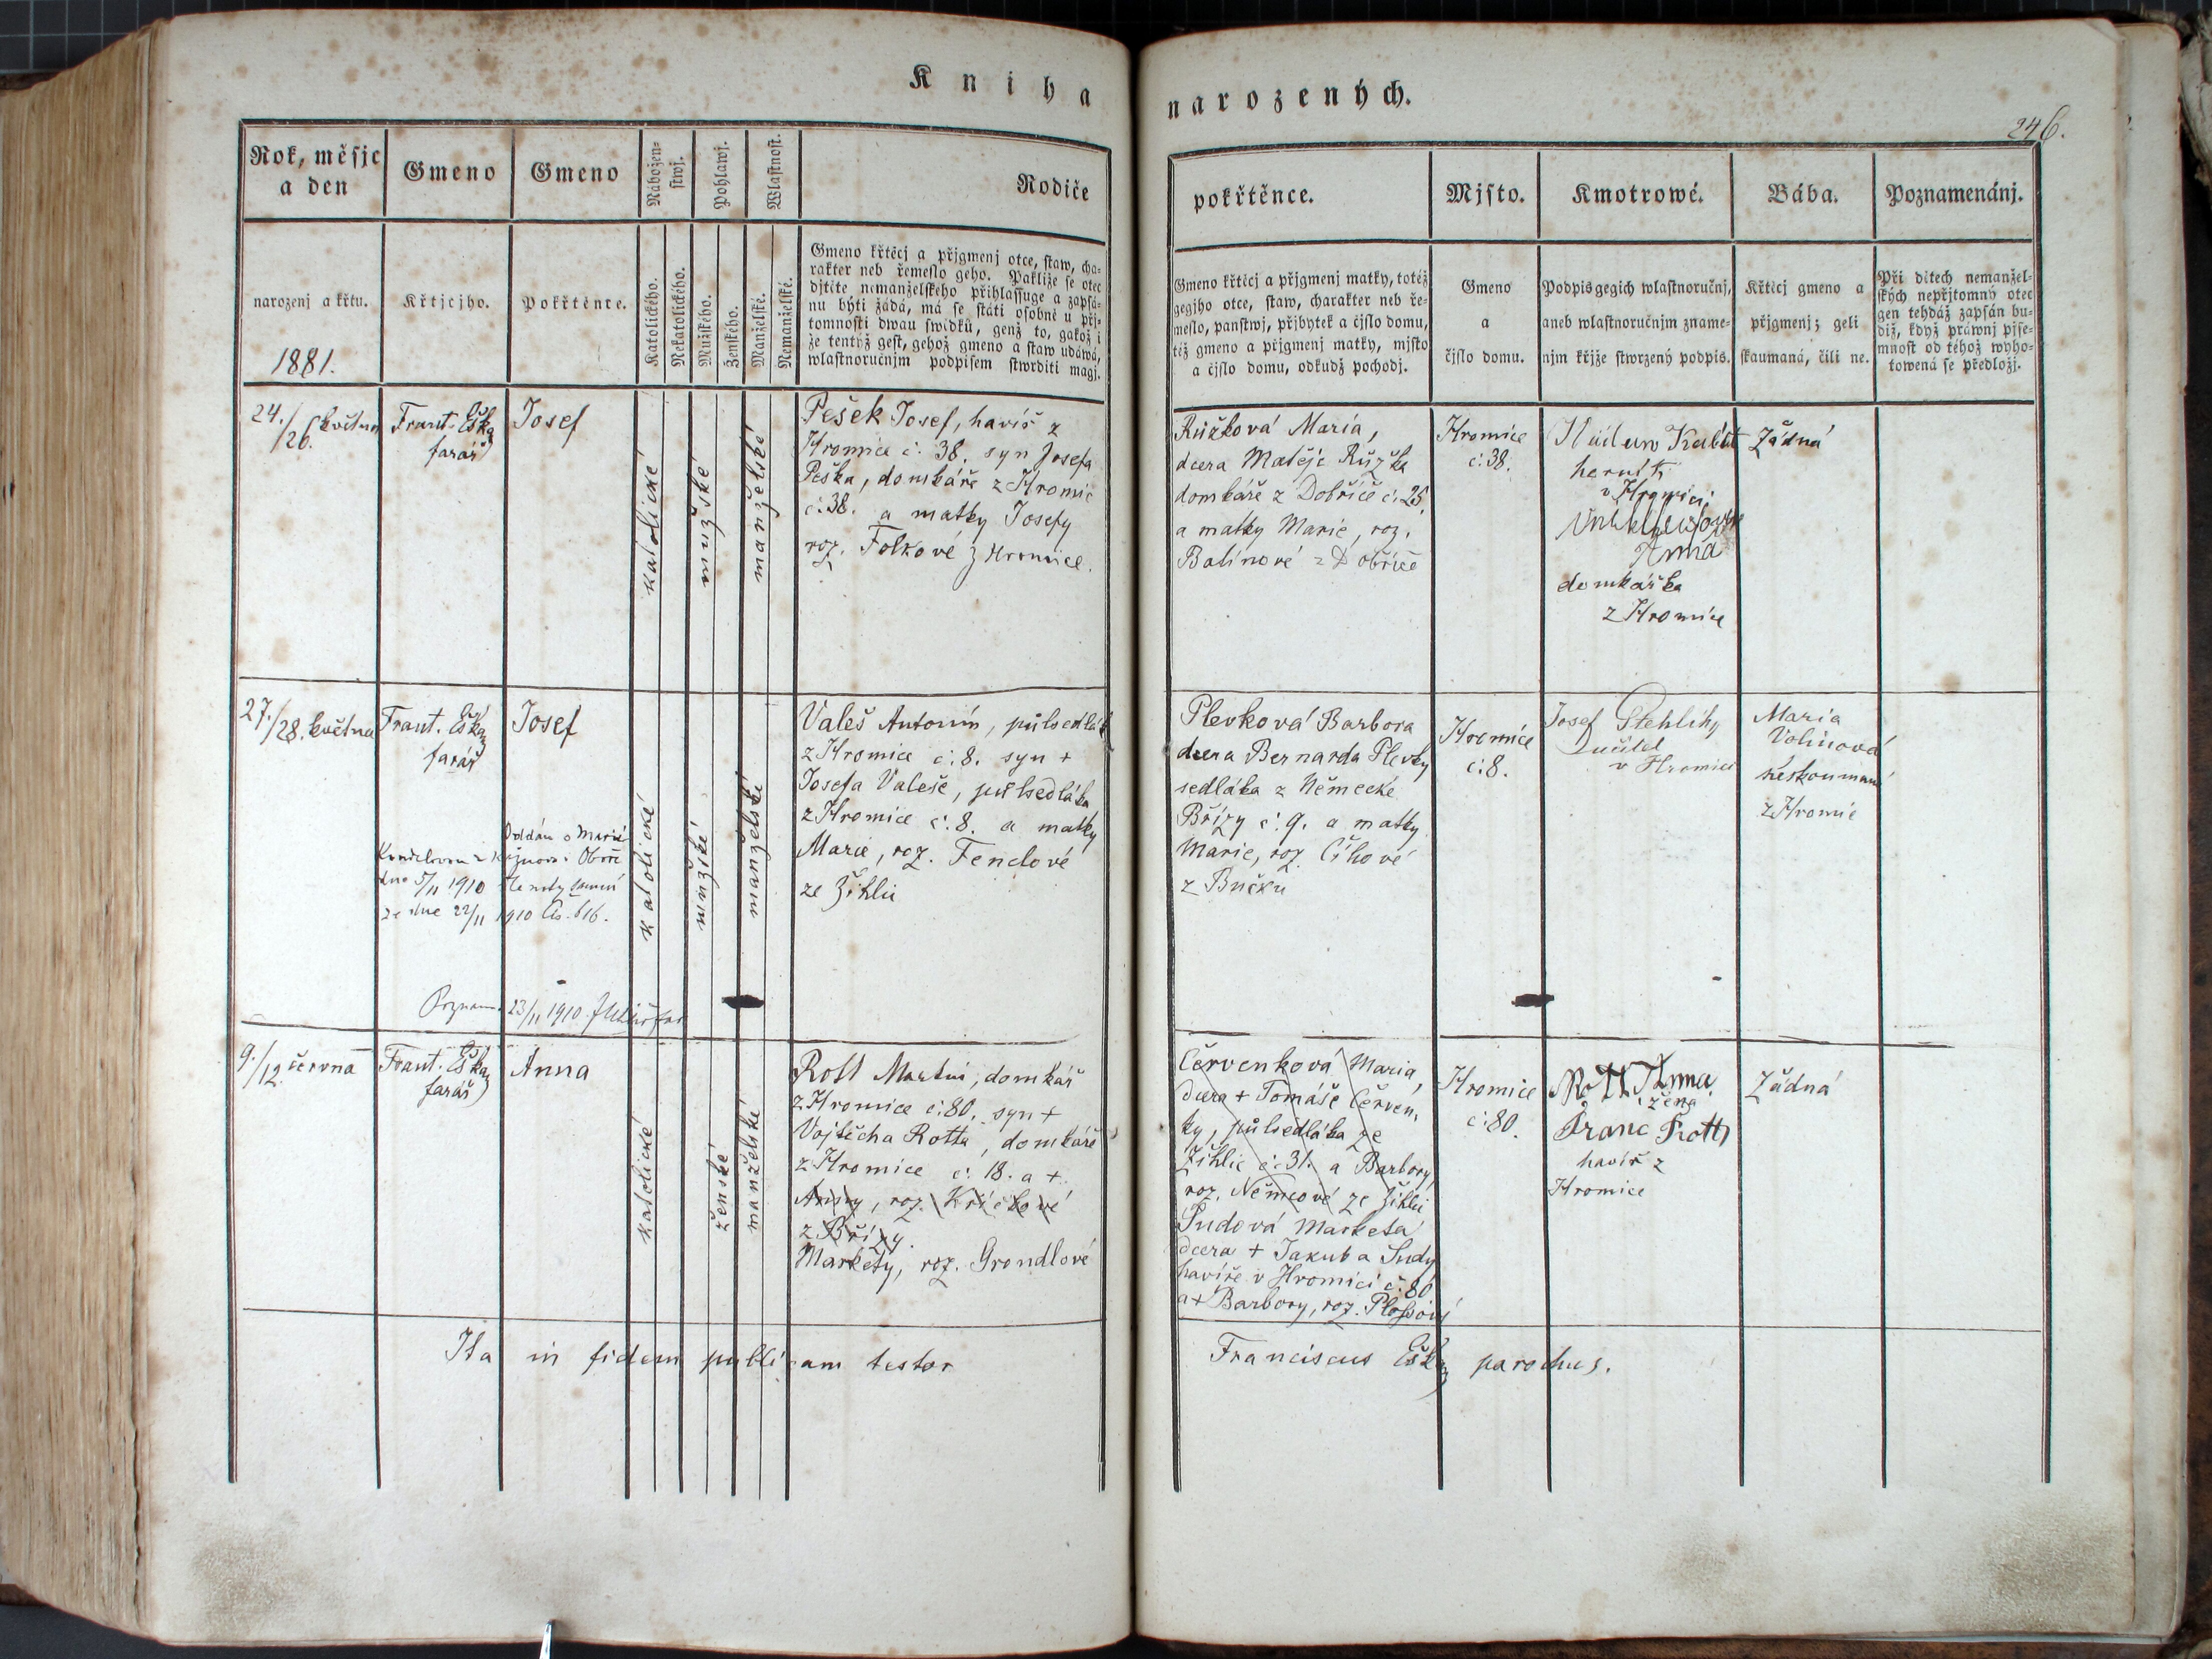 Kniha
narozených.
246.
Rok, měsjc
a den
Gmeno
Gmeno
Nábožen-
stwj.
Pohlawj.
Wlastnost.
Rodiče
pokřtěnce.
Mjsto.
Kmotrowé.
Bába.
Poznamenánj.
narozenj a křtu.
1881.
Křtjcjho.
Pokřtěnce.
Katolického.
Nekatolického.
Mužského.
Ženského.
Manželské.
Nemanželské.
Gmeno křtěcj a přjgmenj otce, staw, cha-
rakter neb řemeslo geho. Pakliže se otec
djtěte nemanželského přihlassuge a zapsá-
nu býti žádá, má se státi osobně u přj-
tomnosti dwau swědků, genž to, gakož i
že tentýž gest, gehož gmeno a staw udáwá,
wlastnoručnjm podpisem stwrditi magj.
Gmeno křtěcj a přjgmenj matky, totéž
gegjho otce, staw, charakter neb ře-
meslo, panstwj, přjbytek a čjslo domu,
též gmeno a přjgmenj matky, mjsto
a čjslo domu, odkudž pochodj.
Gmeno
a
čjslo domu.
Podpis gegich wlastnoručnj,
aneb wlastnoručnjm zname-
njm křjže stwrzený podpis.
Křtěcj gmeno a
přjgmenj; geli
skaumaná, čili ne.
Při dětech nemanžel-
ských nepřjtomný otec
gen tehdáž zapsán bu-
diž, když práwnj pjse-
mnost od téhož wyho-
towená se předložj.
24./26. května
Frant. Eška
farář
Josef
katolické
mužské
manželské
Pešek Josef, havíř z
Hromice č: 38. syn Josefa
Peška, domkáře z Hromic
č: 38. a matky Josefy
roz. Folkové z Hromice.
Růžková Maria,
dcera Matěje Růžka
domkáře z Dobříče č: 25.
a matky Marie, roz.
Balínové z Dobříče
Hromice
č: 38.
v Hromici
Anna
domkářka
z Hromice
Žádná
27./28. května
Frant. Eška
farář
Josef
katolické
mužské
manželské
Valeš Antonín, půlsedlák
z Hromice č: 8. syn +
Josefa Valeše, půlsedláka
z Hromice č: 8. a matky
Marie, roz. Fenclové
ze Žihlic
Plevková Barbora
dcera Bernarda Plevky
sedláka z Německé
Břízy č: 9. a matky
Marie, roz. Číhové
z Bučku
Hromice
č: 8.
Josef Stehlík
učitel
v Hromici
Maria
Volínová
neskoumaná
z Hromic
Oddán s Marií
dne 5/11 1910
ze dne 22/11 1910 čís. 616.
Poznam. 23/11 1910.
9./12. června
Frant. Eška
farář
Anna
katolické
ženské
manželské
Rott Martin, domkář
z Hromice č: 80. syn +
Vojtěcha Rotta, domkáře
z Hromice č: 18. a +
Anny, roz. Kříčkové
z Břízy.
Markéty, roz. Grondlové
Červenková Maria,
dcera + Tomáše Červen-
ky, půlsedláka ze
Žihlic č: 31. a Barbory,
roz. Němcové ze Žihlic
Šudová Marketa
dcera + Jakuba Šudy
havíře v Hromici č: 80
a + Barbory, roz.
Hromice
č: 80.
Rott Anna
žena
Franc Rott
havíř z
Hromice
Žádná
Ita in fidem publicam testor
Franciscus Eška parochus.